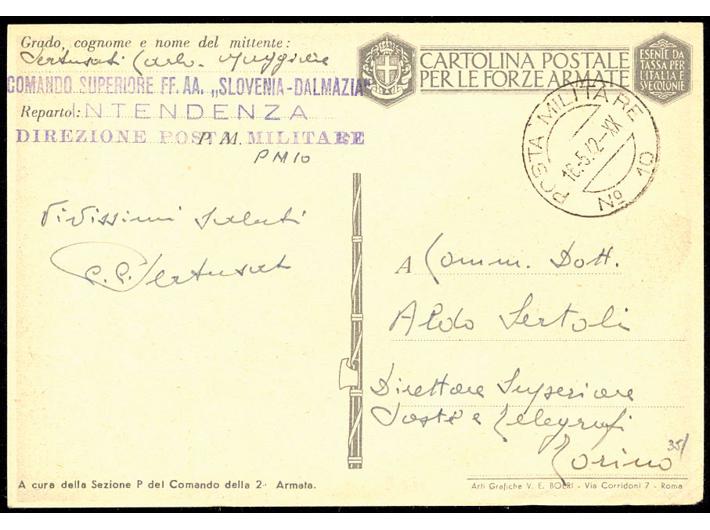 Grado, cognome e nome del mittente:
Pertusati Carlo Ruggiere
COMANDO SUPERIORE FF. AA. „SLOVENIA-DALMAZIA"
Reparto: INTENDENZA
DIREZIONE POSTA MILITARE
P. M.
PM10
CARTOLINA POSTALE
PER LE FORZE ARMATE
ESENTE DA
TASSA PER
L'ITALIA E
SVE COLONIE
POSTA MILITARE
Nº 10
16-5-42-XX
Vivissimi saluti
C. C. Pertusati
A Comm. Dott.
Aldo Sertoli
Direttore Superiore
Poste e Telegrafi
Torino
35/
A cura della Sezione P del Comando della 2ª Armata.
Arti Grafiche V. E. BOERI - Via Corridoni 7 - Roma